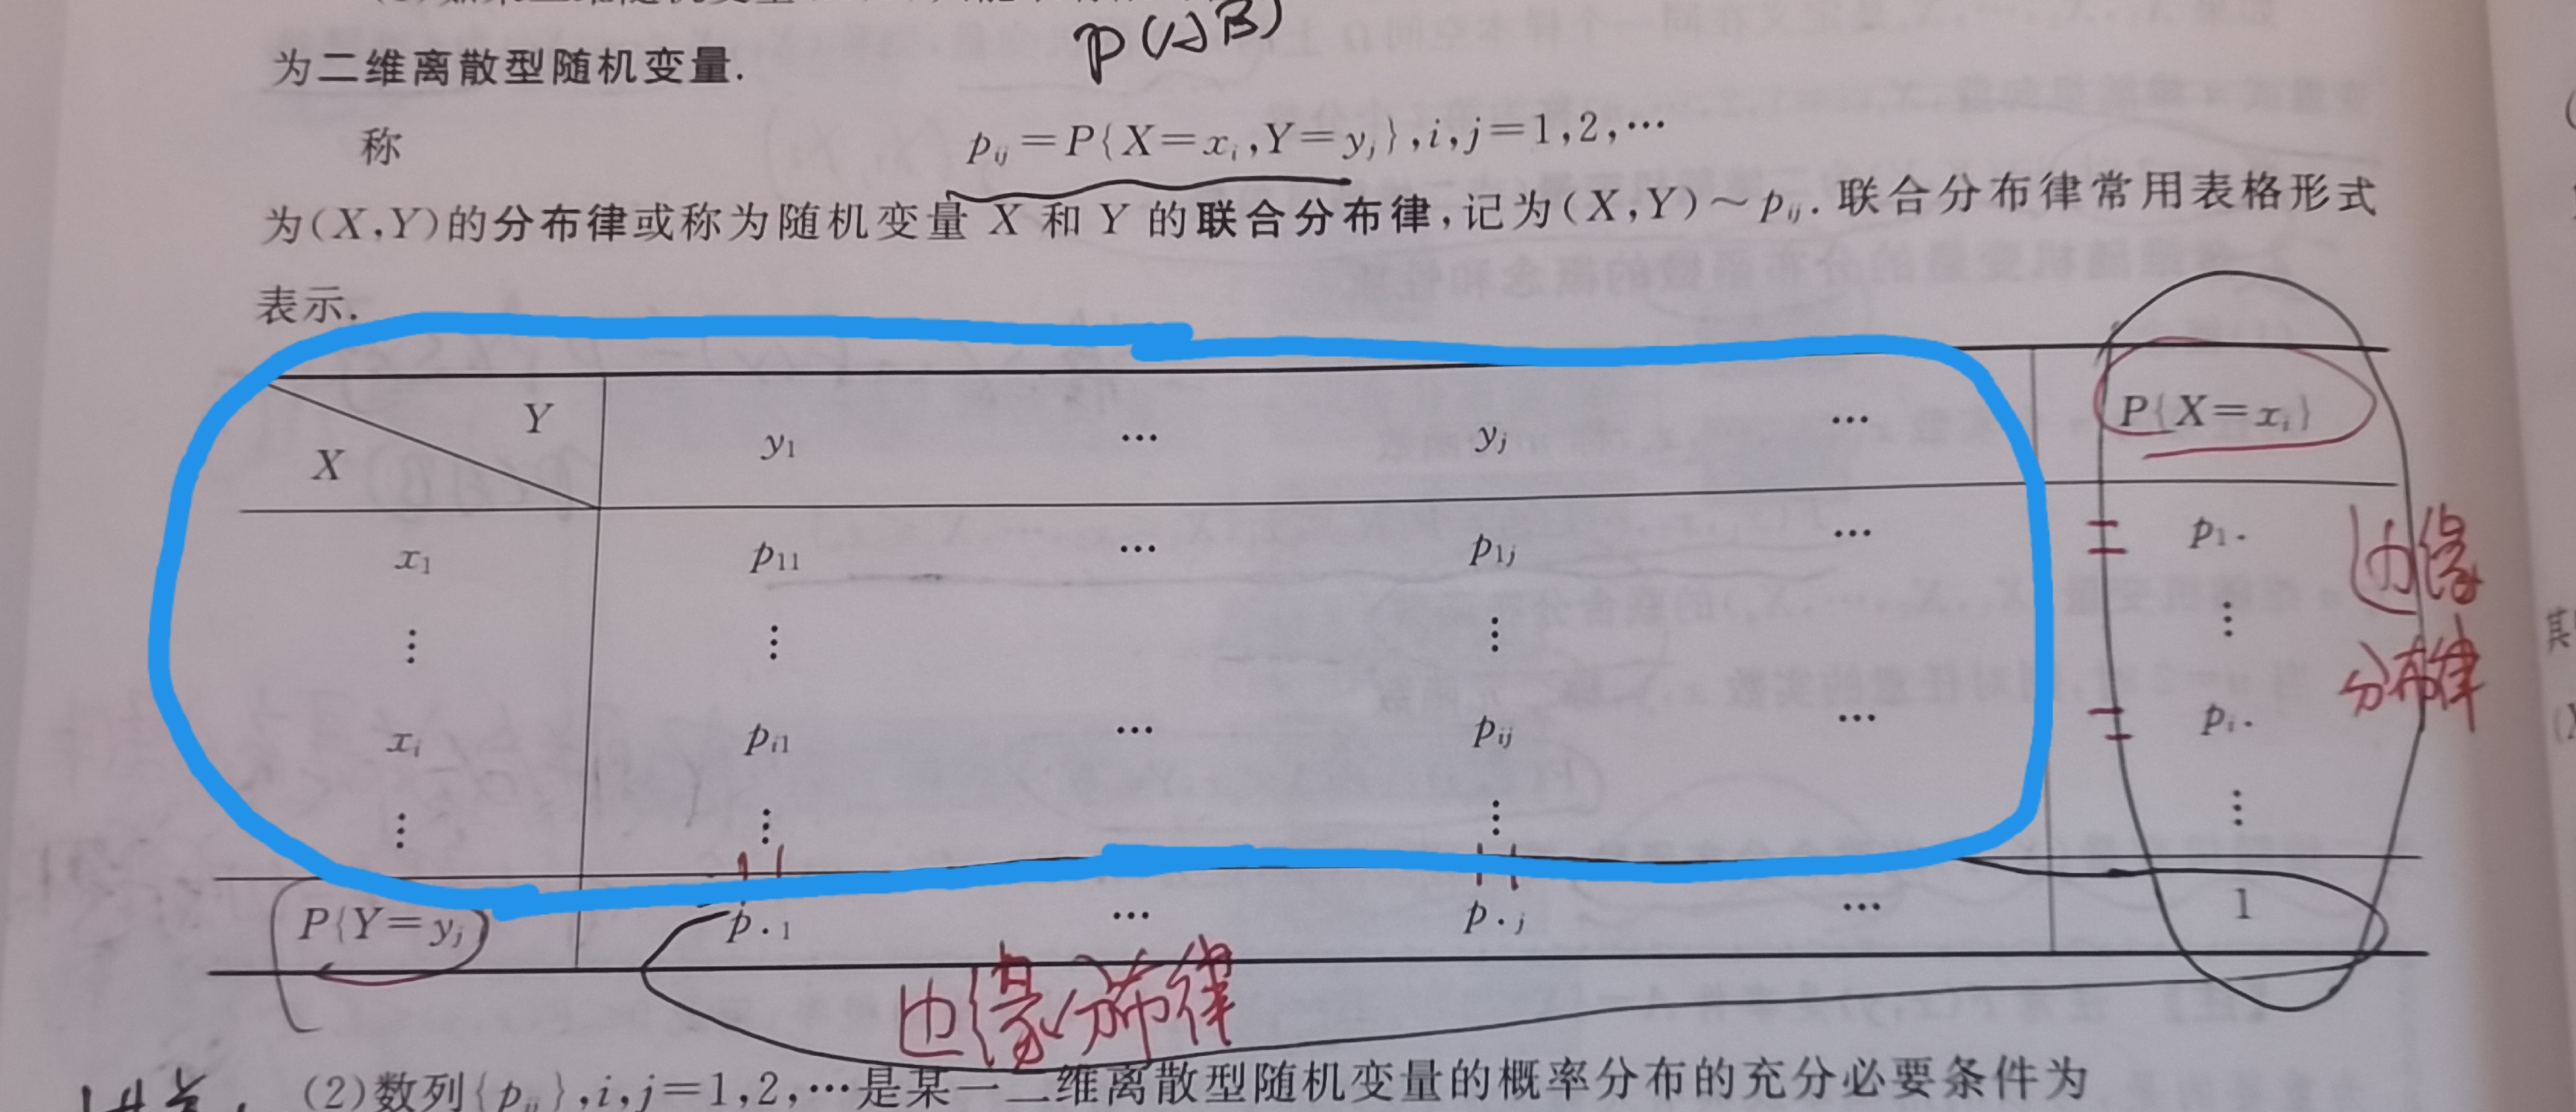 p(AB)
为二维离散型随机变量.
称 p_{ij}=P{X=x_i,Y=y_j},i,j=1,2,⋯
为(X,Y)的分布律或称为随机变量 X 和 Y 的联合分布律,记为(X,Y)～p_{ij}. 联合分布律常用表格形式
表示.
X Y y_1 ⋯ y_j ⋯ P{X=x_i}
x_1 p_{11} ⋯ p_{1j} ⋯ p_{1·}
⋮ ⋮ ⋮ ⋮
x_i p_{i1} ⋯ p_{ij} ⋯ p_{i·}
⋮ ⋮ ⋮ ⋮
P{Y=y_j} p_{·1} ⋯ p_{·j} ⋯ 1
边缘
分布律
边缘分布律
(2)数列{p_{ij}},i,j=1,2,⋯是某一二维离散型随机变量的概率分布的充分必要条件为